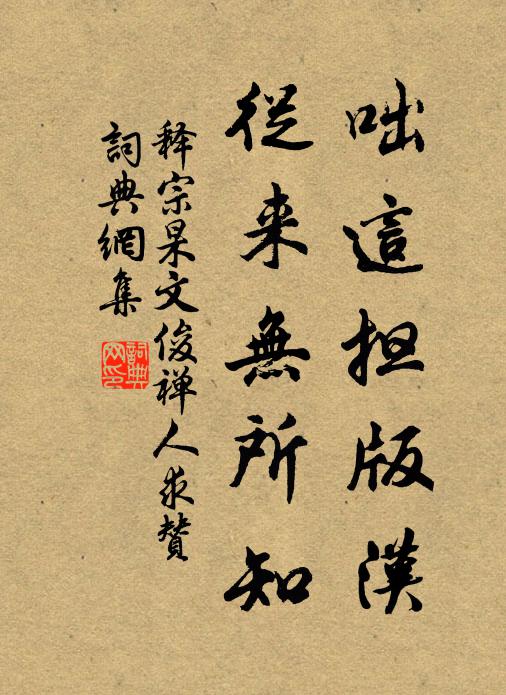 咄這担版漢
從来無所知
释宗杲文俊禅人求贊
詞典網集
詞典网印